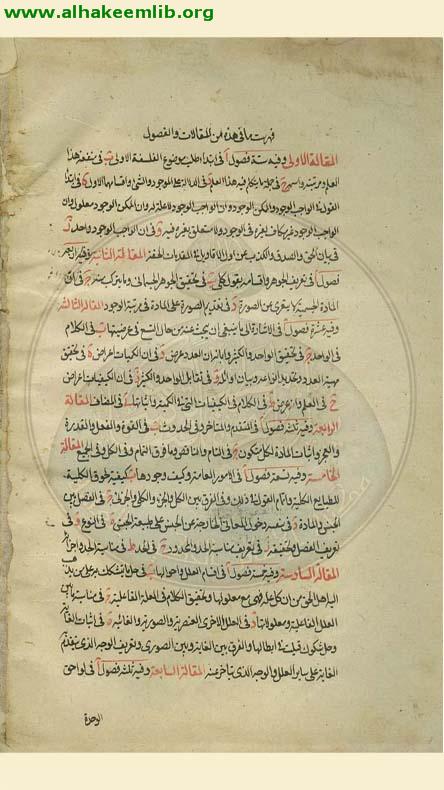 www.alhakeemlib.org
فهرست ما في هذه من المقالات والفصول
المقالة الاولى وفيه ستة فصول ا في ابتداء طلب موضوع الفلسفة الاولى ب في منفعة هذا
العلم ومرتبته واسمه ج في جمل ما يتكلم فيه هذا العلم د في الدلالة على الموجود والشئ واقسامها الاول ه في ابتداء
القول في الواجب الوجود والممكن الوجود وان الواجب الوجود لا علة له وان الممكن الوجود معلول وان
الواجب الوجود غير مكاف لغيره في الوجود ولا متعلق بغيره فيه و في ان الواجب الوجود واحد ز
في بيان الحق والصدق والذب عن اول الاقاويل في المقدمات الحقة المقالة الثانية وفيه اربعة
فصول ا في تعريف الجوهر واقسامه بقول كلي ب في تحقيق الجوهر الجسماني وما يتركب منه ج في ان
المادة الجسمية لا يتعرى عن الصورة د في تقديم الصورة على المادة في مرتبة الوجود المقالة الثالثة
وفيه عشرة فصول ا في الاشارة الى ما ينبغي ان يبحث عنه من حال التسع في عرضيتها ب في الكلام
في الواحد ج في تحقيق الواحد والكثير وابانة ان العدد عرض د في ان الكميات اعراض ه في تحقيق
مهية العدد وتحديد انواعه وبيان اوائله و في تقابل الواحد والكثير ز في ان الكيفيات اعراض
ح في العلم وانه عرض ط في الكلام في الكيفيات التي في الكمية واثباتها ى في المضاف المقالة
الرابعة وفيه ثلثة فصول ا في المتقدم والمتاخر وفي الحدوث ب في القوة والفعل والقدرة
والعجز واثبات المادة لكل متكون ج في التام والناقص وما فوق التمام وفي الكل وفي الجميع المقالة
الخامسة وفيه تسعة فصول ا في الامور العامة وكيف وجودها ب كيفية لحوق الكلية
للطبايع الكلية واتمام القول في ذلك وفي الفرق بين الكل والجزء والكلي والجزئي ج في الفصل بين
الجنس والمادة د في كيفية دخول المعاني الخارجة عن الجنس على طبيعة الجنس ه في النوع و في
تعريف الفصل وتحقيقه ز في تعريف مناسبة الحد والمحدود ح في الحد ط في مناسبة الحد واجزائه
المقالة السادسة وفيه خمسة فصول ا في اقسام العلل واحوالها ب في حل ما يتشكك به على ما يذهب
اليه اهل الحق من ان كل علة فهي مع معلولها وتحقيق الكلام في العلة الفاعلية ج في مناسبة ما بين
العلل الفاعلية ومعلولاتها د في العلل الاخرى العنصرية والصورية والغائية ه في اثبات الغاية
وحل شكوك قيلت في ابطالها والفرق بين الغاية وبين الضروري وتعريف الوجه الذي يتقدم
الغاية على ساير العلل والوجه الذي يتاخر منه المقالة السابعة وفيه ثلثة فصول ا في لواحق
الوحدة